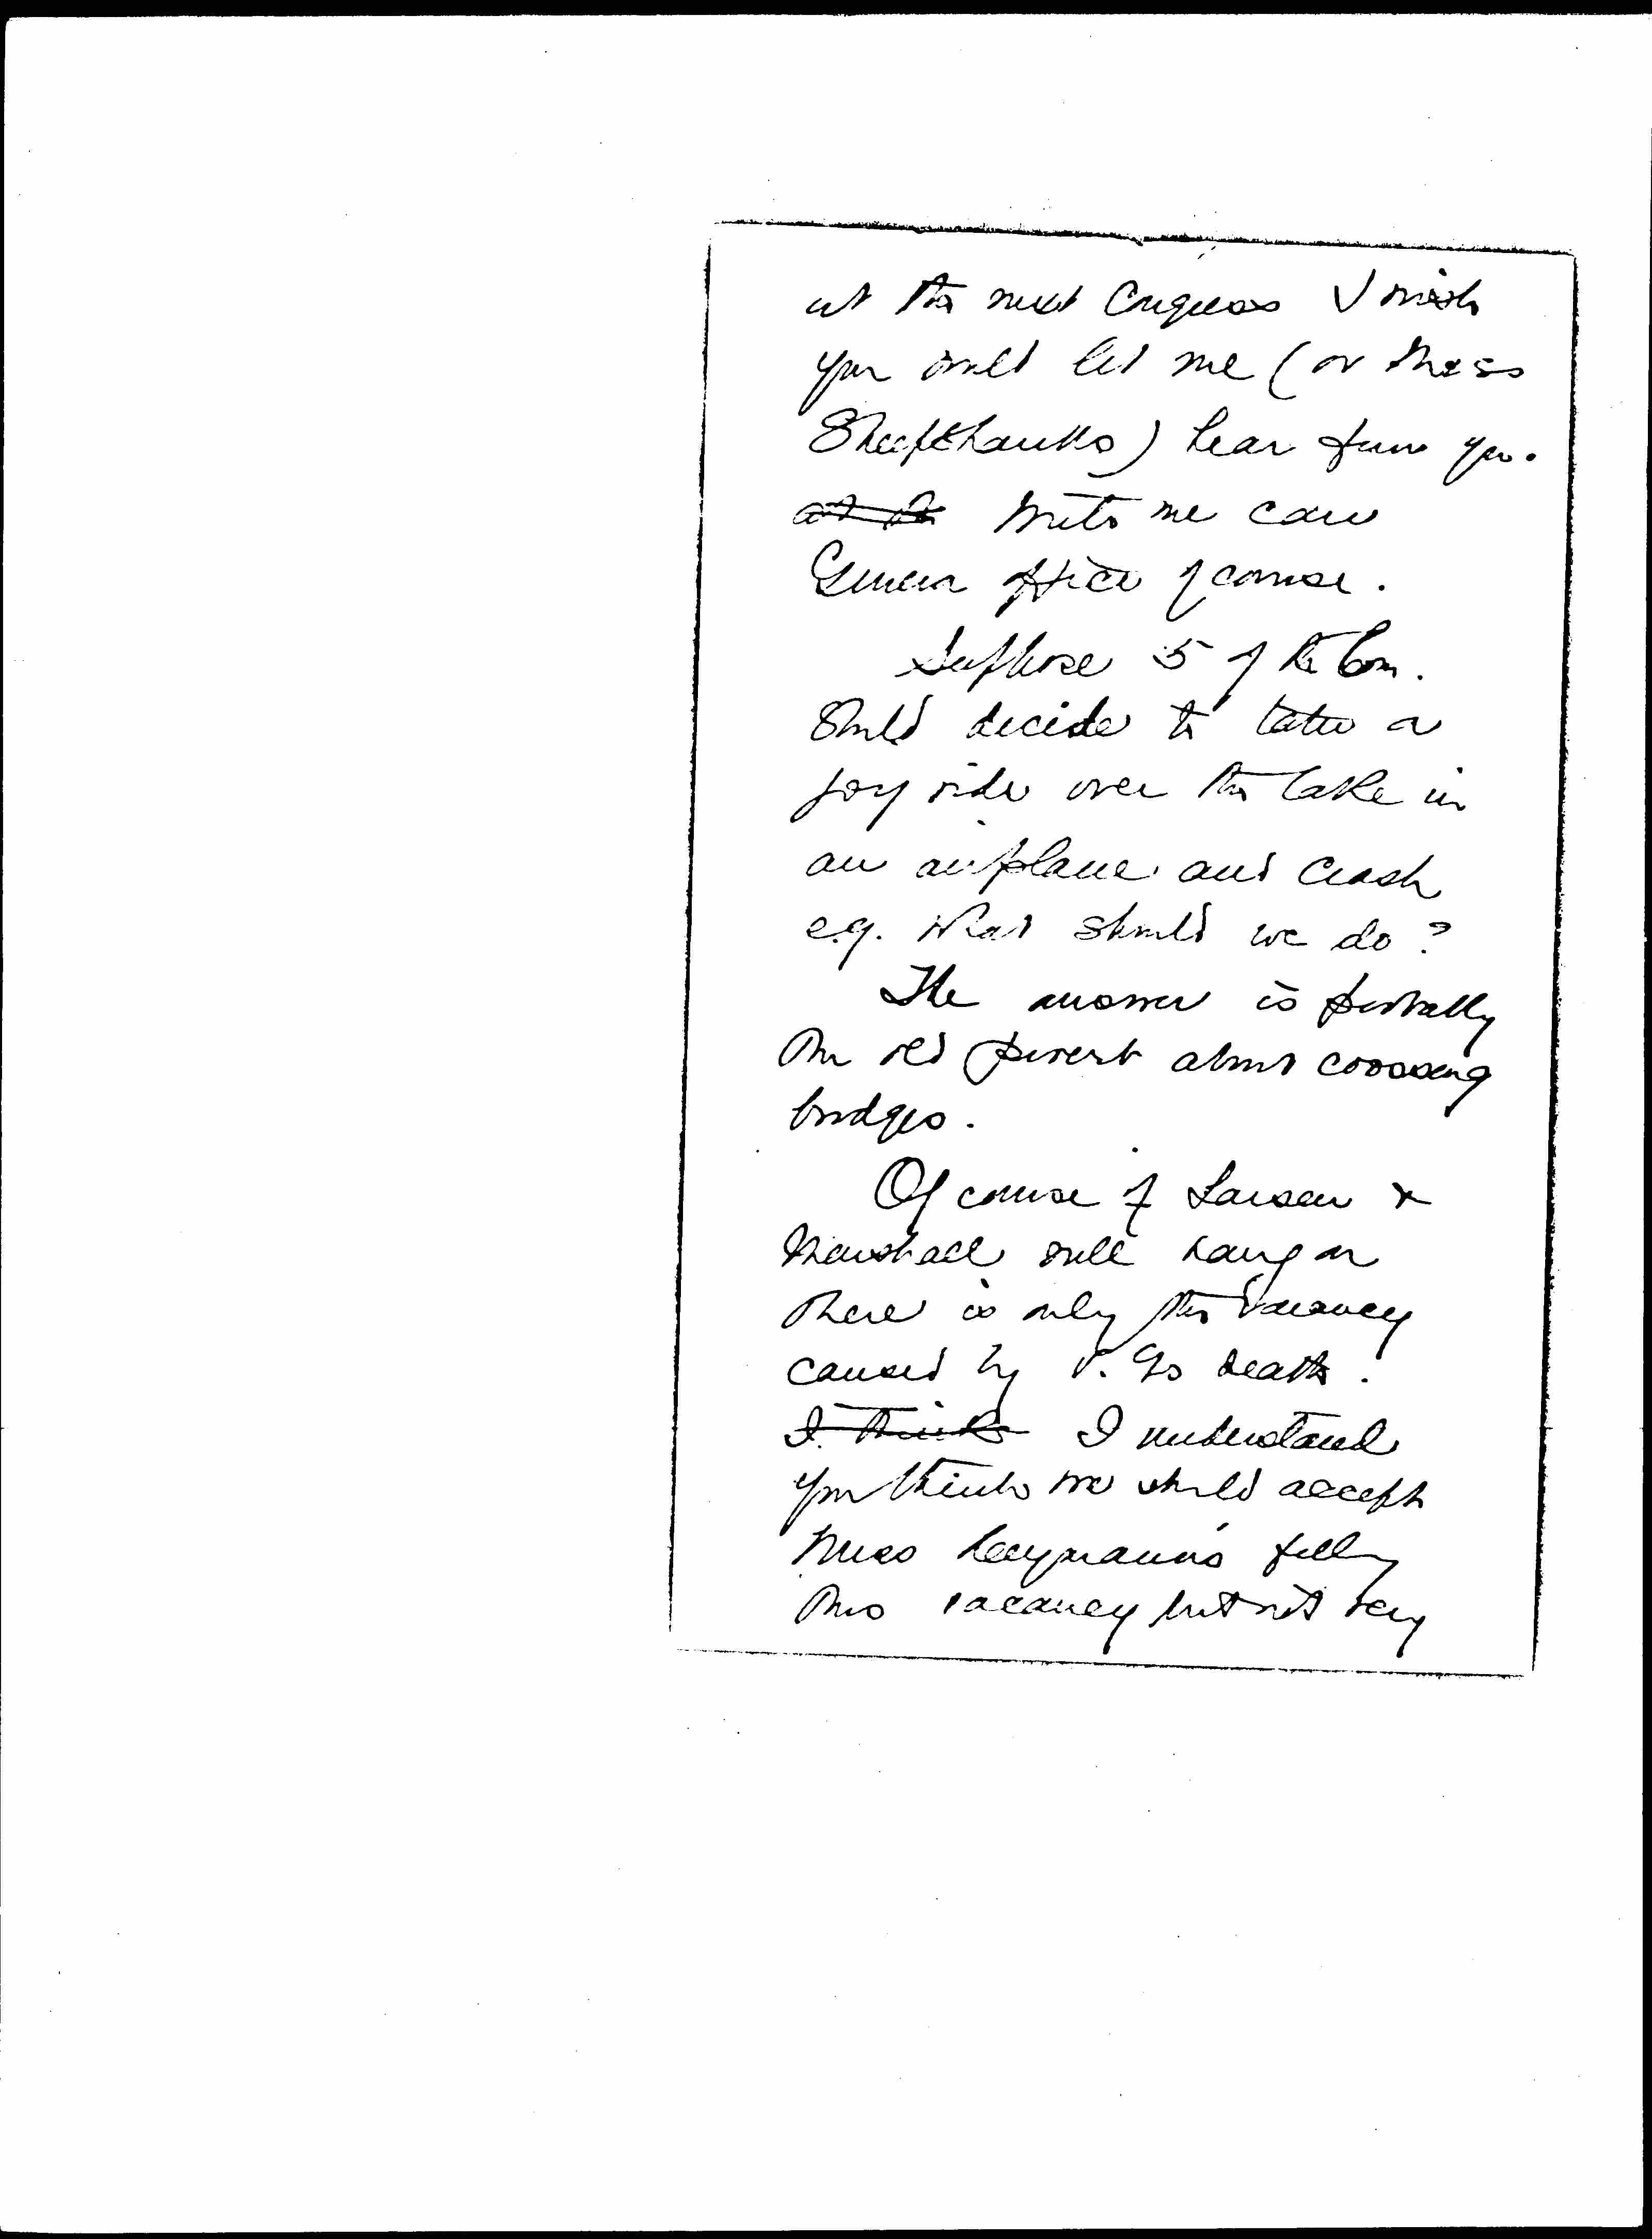 at the next Congress I wish
you would let me (or Miss
Sheepshanks) hear from you.
at the Write me care
Geneva office of course.
Suppose 5 of the Com.
Should decide to take a
joy ride over the lake in
an airplane and crash
e.g. What should we do?
The answer is probably
the old proverb about crossing
bridges.
Of course if Larsen &
Marshall will hang on
there is only the vacancy
caused by V. G's death.
I think I understand
you think we should accept
Miss Heymann's filling
this vacancy but not very